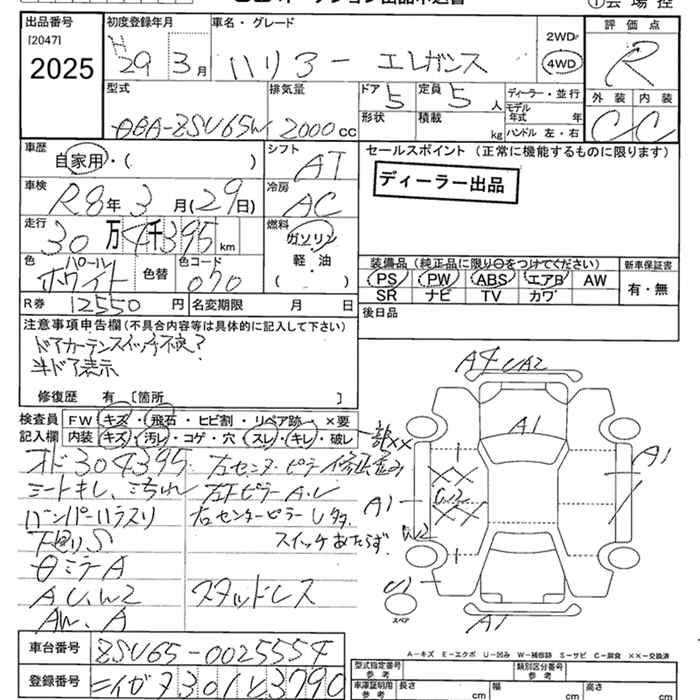 出品番号
[2047]
2025
初度登録年月
H29年3月
車名・グレード
ハリアー エレガンス
2WD
4WD
評価点
R
外装 内装
C C
型式
DBA-ZSU65W
排気量
2000cc
ドア
5
定員
5人
形状
積載
kg
ディーラー・並行
モデル年式 年
ハンドル 左・右
車歴
自家用・( )
シフト
AT
セールスポイント(正常に機能するものに限ります)
ディーラー出品
車検
R8年3月(29日)
冷房
AC
走行
30万4千395km
燃料
ガソリン
軽・油
( )
色
パール
ホワイト
色替
色コード
070
装備品(純正品に限り○をつけてください)
PS PW ABS エアB AW
SR ナビ TV カワ
新車保証書
有・無
R券 12550円
名変期限 月 日
後日品
注意事項申告欄(不具合内容等は具体的に記入して下さい)
ドアカーテンスイッチ不良?
半ドア表示
修復歴 有[箇所 ]
検査員
記入欄
FW キズ・飛石・ヒビ割・リペア跡・×要
内装 キズ・汚レ・コゲ・穴・スレ・キレ・破レ
オド304395
シートキレ、汚れ
バンパーハラスリ
下廻りS
A U、W2
AW、A
左センターピラー修正歪み
スイッチあたらず
スタッドレス
A4 UA2
A1
A1
A1
W2
W2
U1
A1
スペア
A-キズ E-エクボ U-凹み W-補修跡 S-サビ C-腐食 ××-交換済
車台番号
ZSU65-0025554
登録番号
型式指定番号
参考
類別区分番号
参考
車庫証明用
参考
長さ cm
幅 cm
高さ cm